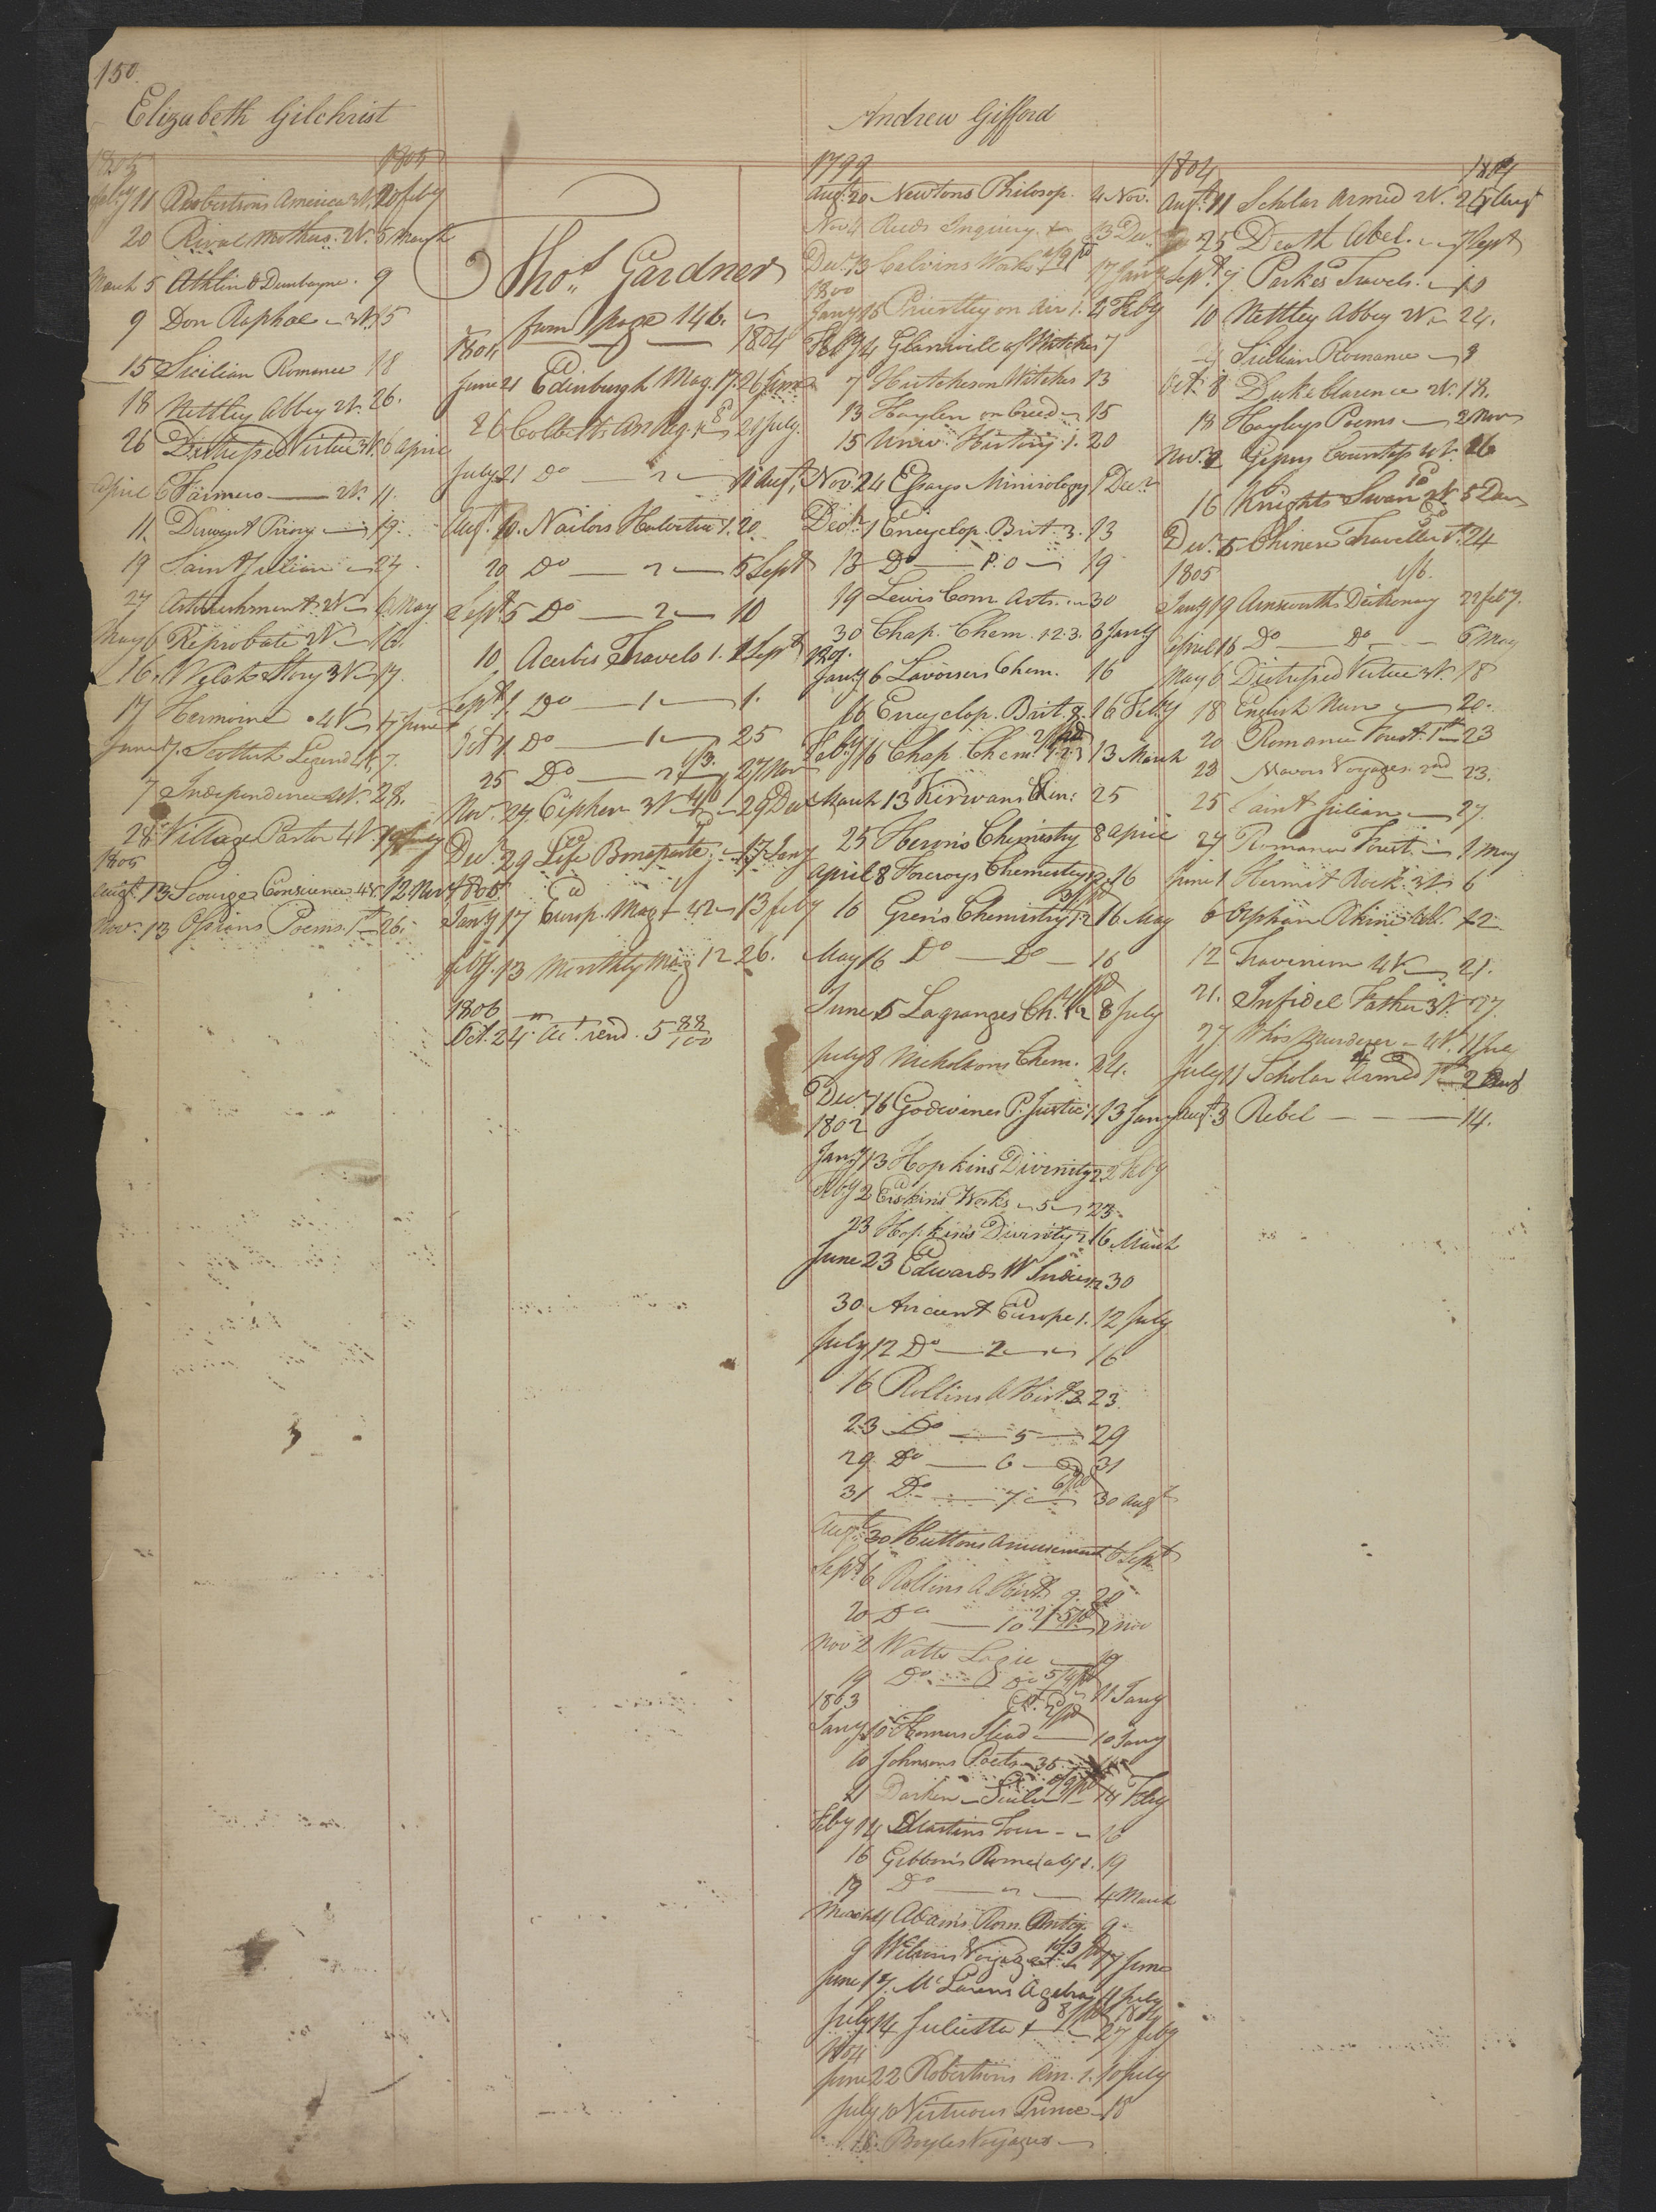 150.
Elizabeth Gilchrist
1805 1805
Feby 11 Robertsons America 3V. 20 feby
20 Rival Mothers. 2V. 5 March
March 5 Athlin & Dunbayne. 9
9 Don Raphael 3V. 15
15 Sicilian Romance 18
18 Nettley Abbey 2V. 26.
26 Distressed Virtue 3V. 6 April
April 6 Farmers — 2V. 11.
11. Derwent Priory — 19.
19 Saint Julian — 27.
27 Astonishment. 2V — 6 May
May 6 Reprobate 2V — 16.
16. Welch Story 3V — 17.
17 Hermoine 4V — 17 June
June 17. Scottish Legend 4V. 7.
7 Independence 4V. 28.
28 Village Pastor 4V. 19 July
1805
Augt. 13 Scourge Conscience 4V. 12 Nov
Nov. 13 Ossians Poems. 1st 26.
Thos. Gardner
from page 146.
1804 1804
June 21 Edinburgh Mag. 17. 26 June
26 Colberts An. Reg. 1 21 July.
July 21 Do — 2 — 11 Augt.
Augt. 10. Nailors Helvetia 1. 20.
20 Do — 2 — 5 Sept
Sept. 5 Do — 2 — 10
10 Acerbis Travels 1. 1 Sept
Sept 1 Do — 1 — 1.
Oct 1 Do — 1 — 25
25 Do — 2 1/3. 27 Nov
Nov. 27. Cipher 3V 4/6 29 Dec
Dec. 29 Life Bonaparte, 17 Jany
1805
Jany 17 Europ. Mag 42 13 feby
feby. 13 Monthly Mag 12 26.
1806
Oct. 24 Act. rend. 5 88/100
Andrew Gifford
1799
Augt. 20 Newtons Philosop. 4 Nov.
Nov 4 Reids Inquiry. 13 Dec
Dec. 13 Calvins Works 17 Jany
1800
Jany 18 Priestley on Air 1. 4 Feby
Feby 4 Glanvill of Witches 7
7 Hutcheson Witches 13
13 Haylen on Creed 15
15 Univ. History 1. 20
Nov. 24 Essays Minirology 1 Decr.
Decr. 1 Encyclop. Brit. 3. 13
13 Do — P. O — 19
19 Lewis Com. Arts. 30
30 Chap. Chem. 1.2.3. 6 Jany
1801.
Jany 6 Lavoisers Chem. 16
16 Encyclop. Brit. 7. 16 Feby
Feby 16 Chap. Chem. 1.2.3 13 March
March 13 Kirwans Min: 25
25 Herons Chemistry 8 April
April 8 Forcroys Chemistry 1.2. 16
16 Grens Chemistry 1.2 16 May
May 16 Do — Do — 16
June 5 Lagranges Ch. 1.2 8 July
July 8 Nicholsons Chem. 24.
Decr. 16 Godwines P. Justice 1. 13 Jany
1802
Jany 13 Hopkins Divinity 2 2 Feby
Feby 2 Erskins Works 5 23.
23 Hopkins Divinity 2 16 March
June 23 Edwards W Indies 1.2 30
30 Ancient Europe 1. 12 July
July 12 Do — 2 — 16
16 Rollins A Hist. 3. 23
23 Do — 5 — 29
29. Do — 6 — 31
31 Do — 7 6/pd 30 Augt
Augt. 30 Huttons Amusement 6 Sept
Sept 6 Rollins A Hist. 9. 20
20 Do — 10 2 Nov
Nov 2 Watts Logic — 19
19 Do 11 Jany
1803
Jany 10 Homers Iliad — 10 Jany
10 Johnsons Poets 35
14 Feby
Feby 14 Martins Tour — 16
16 Gibbons Rome abg 1. 19
19 Do — 2 — 4 March
March 4 Adams Rom. Antiq. 9
9 Wilsons Voyage 17 June
June 17. McLarens Algebra 14 July
July 14 Julietta 1 27 feby
1804
June 22 Robertsons Am. 1. 10 July
July 10 Virtuous Prince 18
18. Boyles Voyages
1804 1804
Augt. 11 Scholar Armed 2V. 25 Augt
25 Death Abel. 7 Sept
Sept. 7 Parkes Travels. 10
10 Nettley Abbey 2V 24.
24 Sicilian Romance 8
Oct. 8 Duke Clarence 2V. 18.
18 Hayleys Poems — 2 Nov
Nov. 2 Gipsey Countess 4V. 16
16 Knights Swan 2V 5 Dec
Dec. 5 Chinese Traveller 1st. 24
1805
Jany 19 Ainsworths Dictionary 22 feby.
April 16 Do — Do — 6 May
May 6 Distressed Virtue 3V. 18
18 English Nun 20.
20 Romance Forest. 1st 23
23 Mavors Voyages. 2nd 23.
25 Saint Julian — 27.
27 Romance Forest — 1 May
June 1 Hermit Rock. 3V 6
6 Orphan 12
12 Traverinion 4V 21.
21. Infidel Father 3V. 27.
27 Whos Murderer 4V. 11 July
July 11 Scholar Armed 1st 2 Augt
Augt. 3 Rebel — 14.